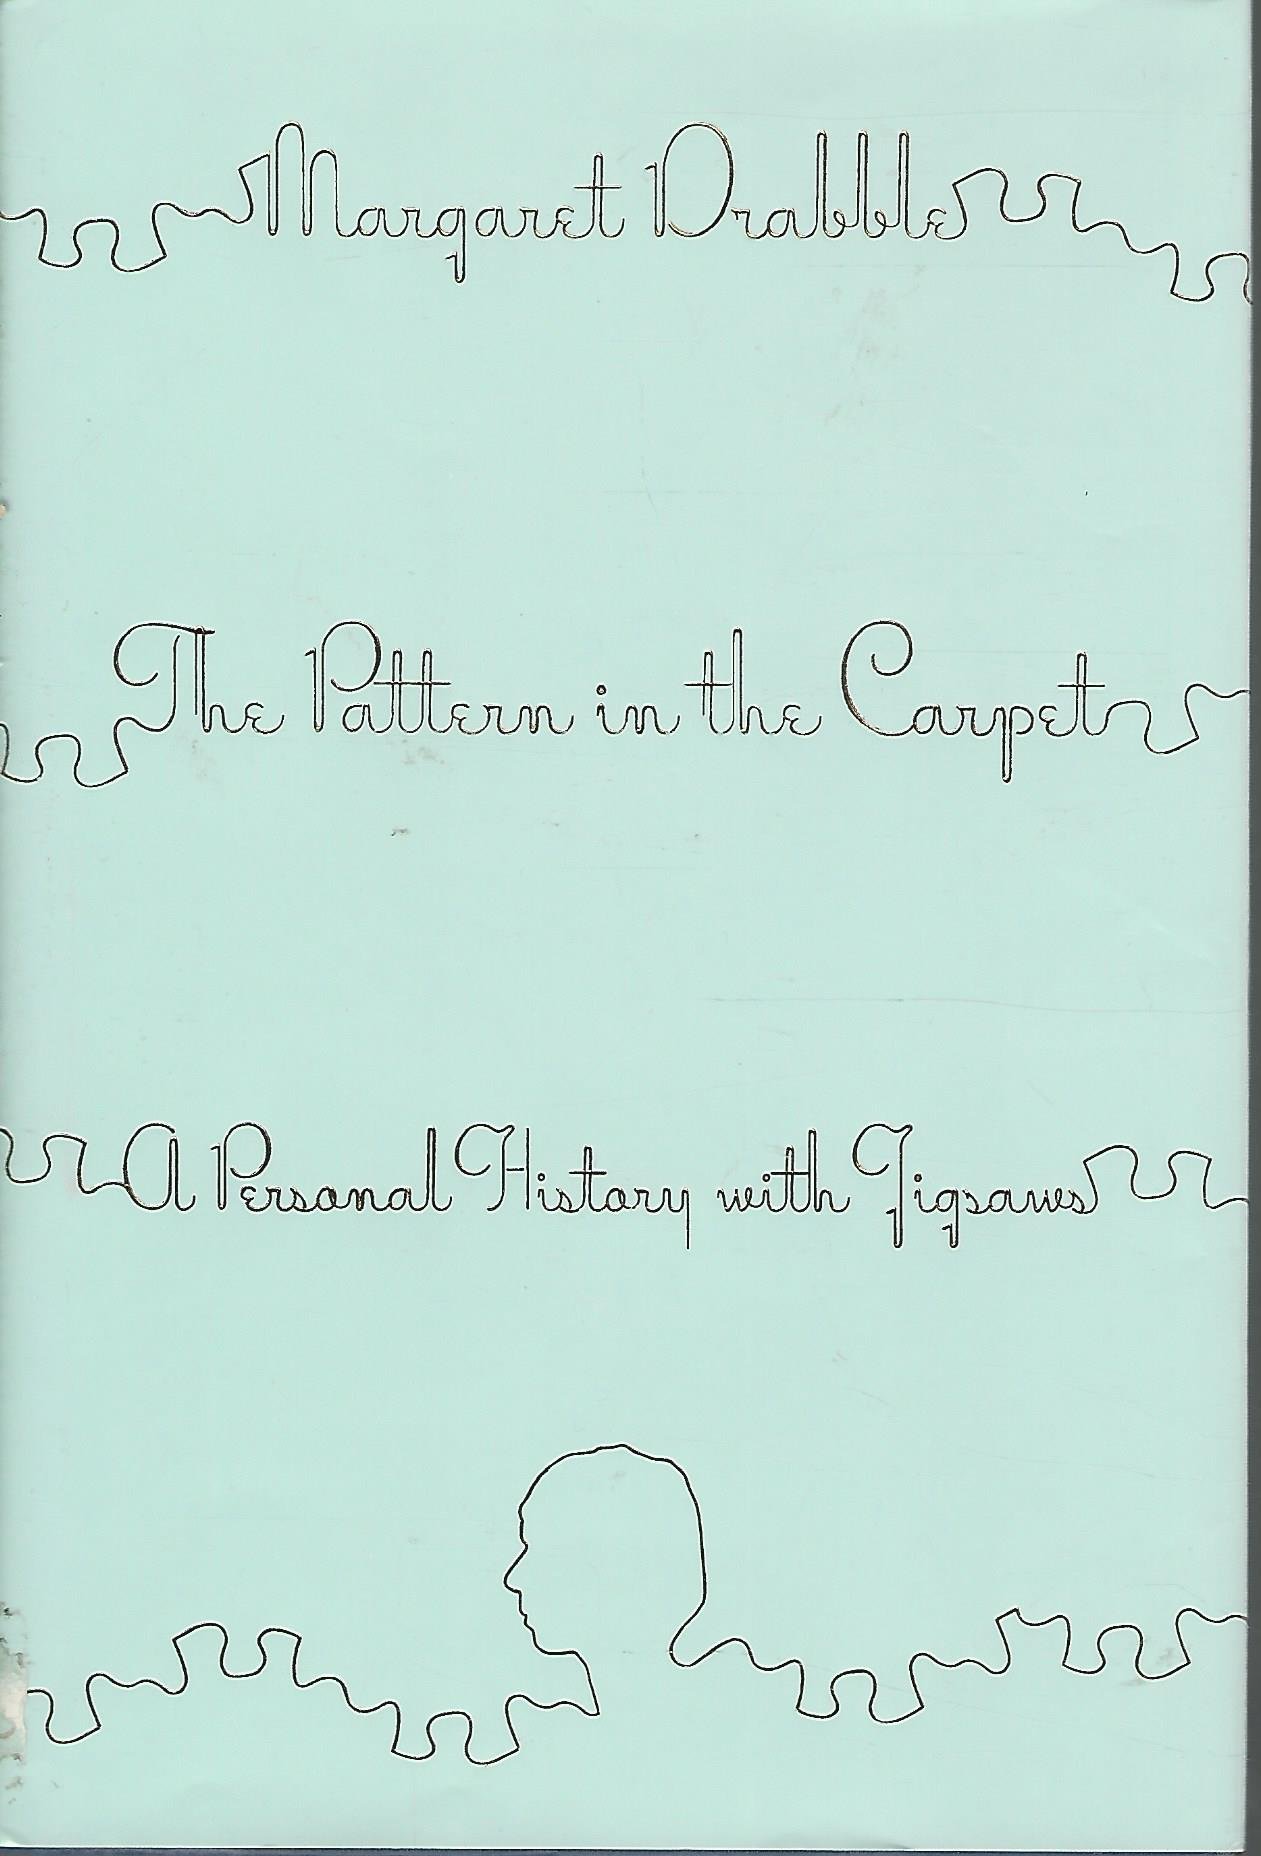 Margaret Drabble
The Pattern in the Carpet
A Personal History with Jigsaws